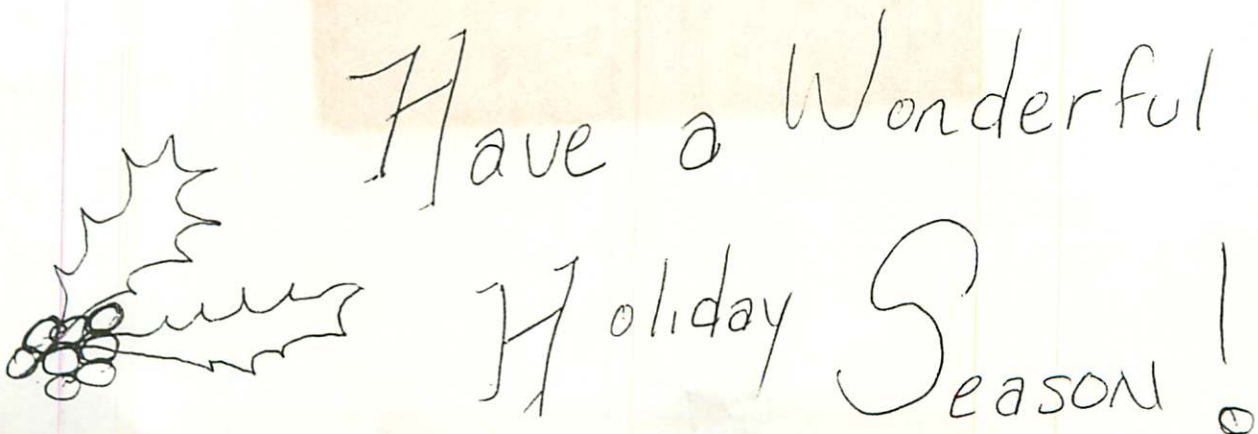 Have a Wonderful
Holiday Season!